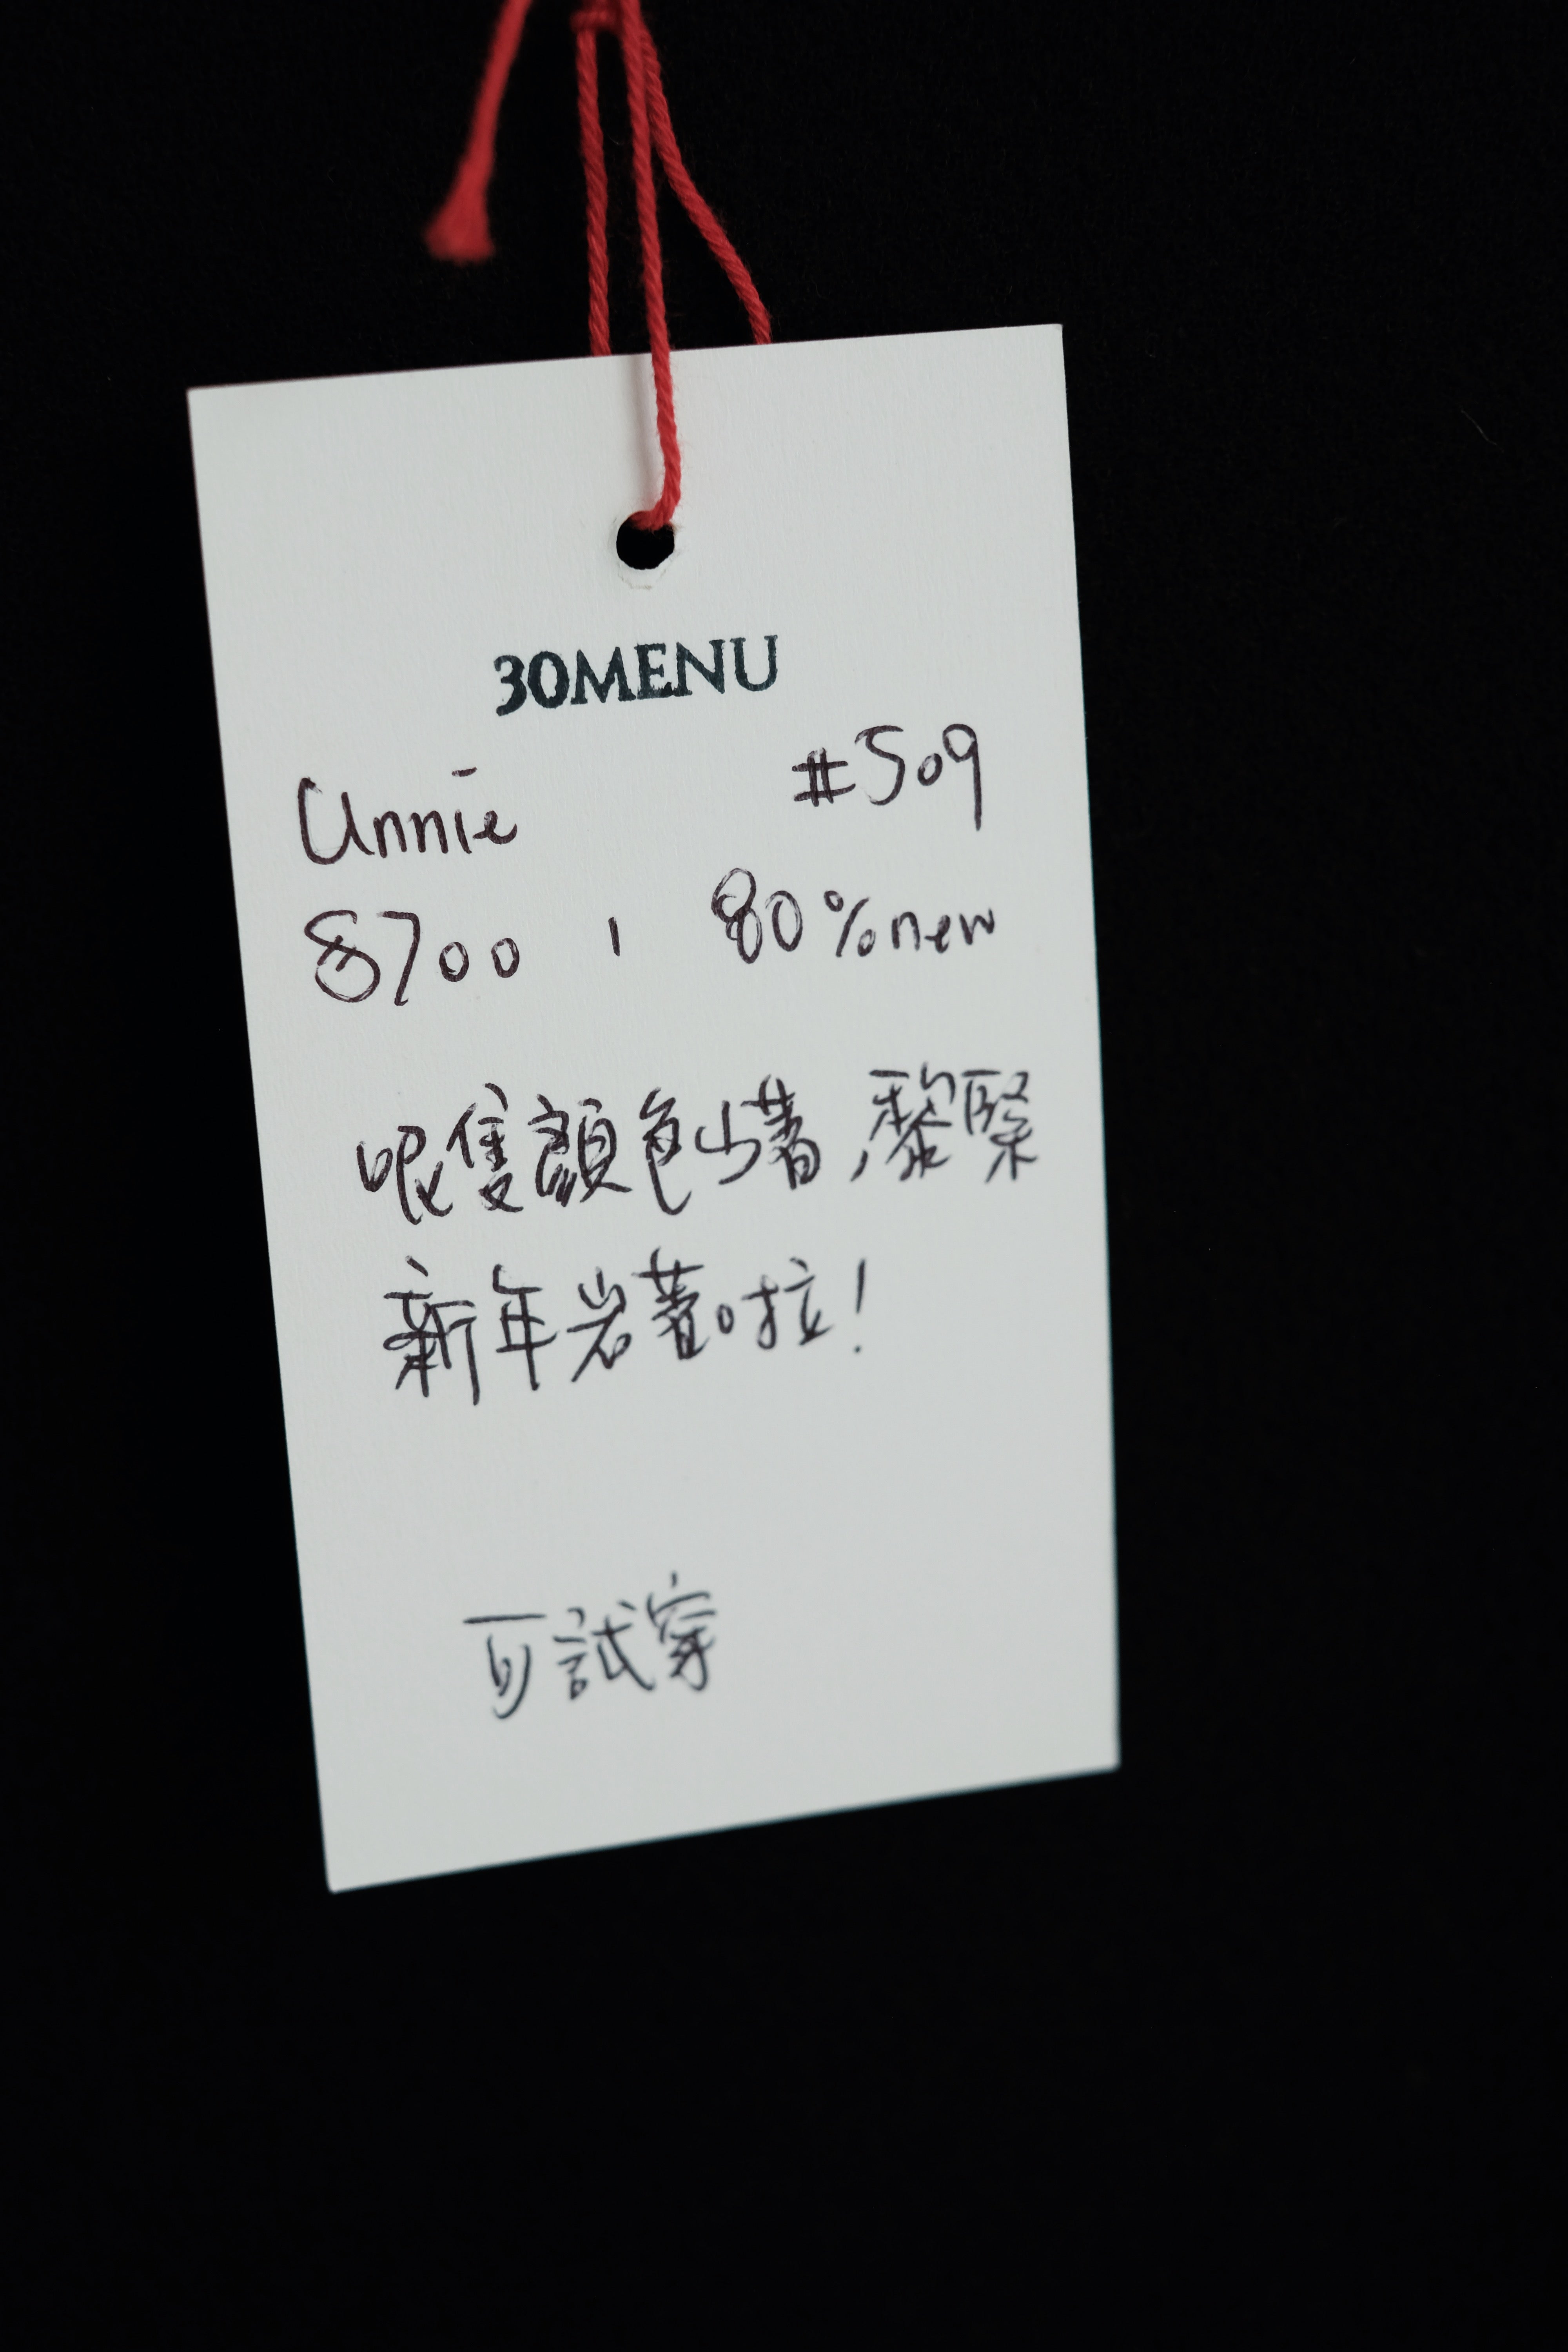 30MENU
Unnie #509
$700 , 80%new
呢隻顏色少著,黎緊
新年岩著啦!
可試穿